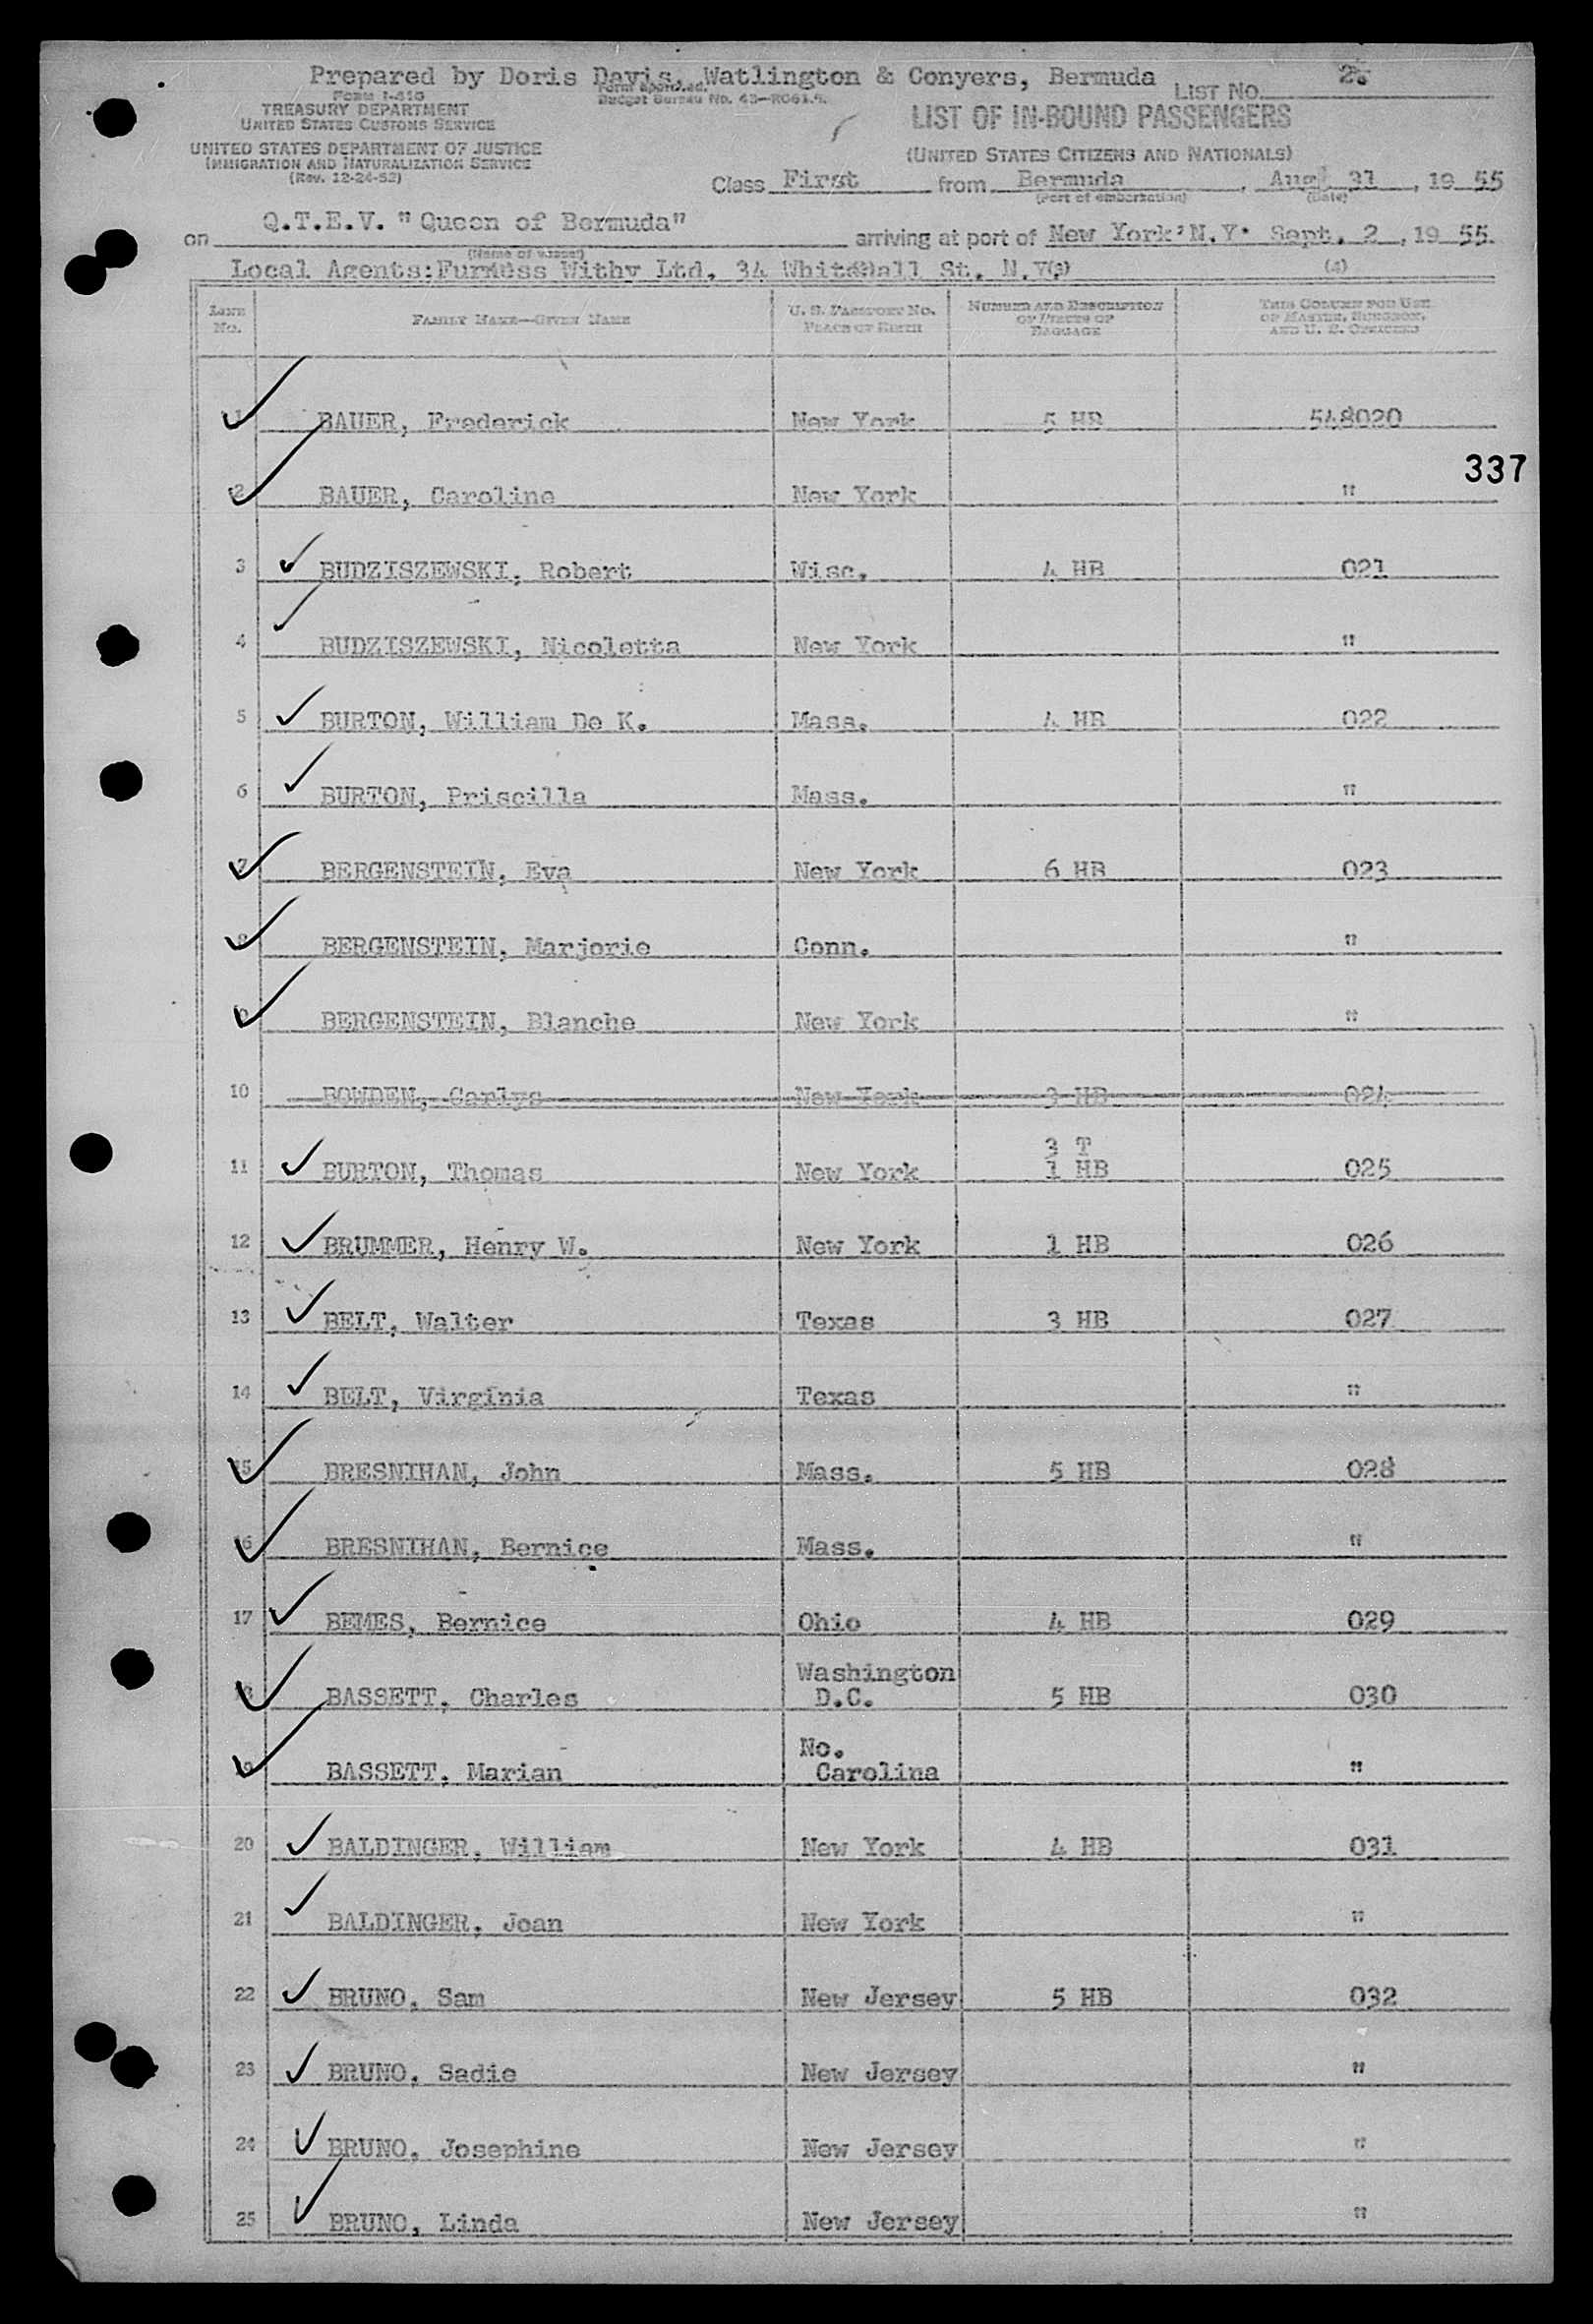 Prepared by Doris Davis, Watlington & Conyers, Bermuda
LIST No. 2.
Form I-418
Form approved.
Budget Bureau No. 43—R061.4.
TREASURY DEPARTMENT
UNITED STATES CUSTOMS SERVICE
LIST OF IN-BOUND PASSENGERS
UNITED STATES DEPARTMENT OF JUSTICE
IMMIGRATION AND NATURALIZATION SERVICE
(Rev. 12-24-52)
(UNITED STATES CITIZENS AND NATIONALS)
Class First from Bermuda, Aug 31, 1955
(Port of embarkation) (Date)
on Q.T.E.V. "Queen of Bermuda" arriving at port of New York, N.Y. Sept. 2, 1955.
(Name of vessel)
Local Agents: Furness Withy Ltd. 34 Whitehall St. N.Y. (3) (4)
LINE No. FAMILY NAME—GIVEN NAME U. S. PASSPORT No. PLACE OF BIRTH NUMBER AND DESCRIPTION OF PIECES OF BAGGAGE THIS COLUMN FOR USE OF MASTER, SURGEON, AND U. S. OFFICERS
1 BAUER, Frederick New York 5 HB 548020
337
2 BAUER, Caroline New York "
3 BUDZISZEWSKI, Robert Wisc. 4 HB 021
4 BUDZISZEWSKI, Nicoletta New York "
5 BURTON, William De K. Mass. 4 HB 022
6 BURTON, Priscilla Mass. "
7 BERGENSTEIN, Eva New York 6 HB 023
8 BERGENSTEIN, Marjorie Conn. "
9 BERGENSTEIN, Blanche New York "
10 BOWDEN, Carlys New York 3 HB 024
3 T
11 BURTON, Thomas New York 1 HB 025
12 BRUMMER, Henry W. New York 1 HB 026
13 BELT, Walter Texas 3 HB 027
14 BELT, Virginia Texas "
15 BRESNIHAN, John Mass. 5 HB 028
16 BRESNIHAN, Bernice Mass. "
17 BEMES, Bernice Ohio 4 HB 029
Washington
18 BASSETT, Charles D.C. 5 HB 030
No.
19 BASSETT, Marian Carolina "
20 BALDINGER, William New York 4 HB 031
21 BALDINGER, Joan New York "
22 BRUNO, Sam New Jersey 5 HB 032
23 BRUNO, Sadie New Jersey "
24 BRUNO, Josephine New Jersey "
25 BRUNO, Linda New Jersey "